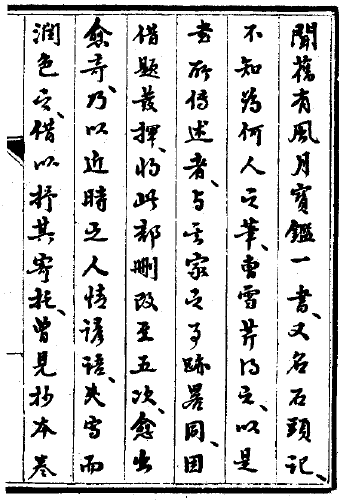 聞舊有風月寶鑑一書、又名石頭記、
不知為何人之筆、曹雪芹得之、以是
書所傳述者、与其家之事跡畧同、因
借題發揮、将此部刪改至五次、愈出
愈奇、乃以近時之人情諺語、夹写而
潤色之、借以抒其寄托、曾見抄本卷